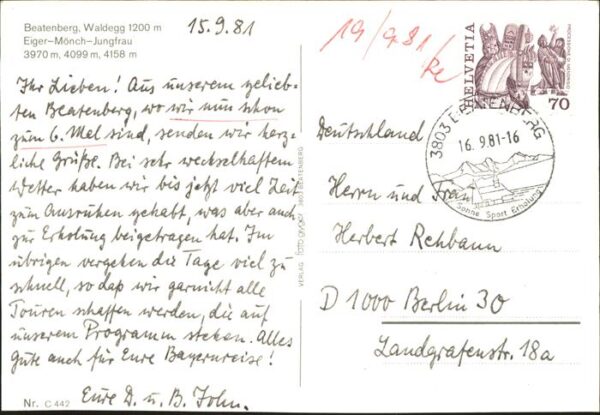 Beatenberg, Waldegg 1200 m
Eiger–Mönch–Jungfrau
3970 m, 4099 m, 4158 m
15.9.81
Ihr Lieben! Aus unserem gelieb-
ten Beatenberg, wo wir nun schon
zum 6. Mal sind, senden wir herz-
liche Grüße. Bei sehr wechselhaftem
Wetter haben wir bis jetzt viel Zeit
zum Ausruhen gehabt, was aber auch
zur Erholung beigetragen hat. Im
übrigen vergehen die Tage viel zu
schnell, so daß wir garnicht alle
Touren schaffen werden, die auf
unserem Programm stehen. Alles
Gute auch für Eure Bayernreise!
Eure D. u. B. John.
Nr. C 442
VERLAG FOTO 3803 BEATENBERG
19/9 81
HELVETIA
70
3803 BEATENBERG
16.9.81-16
Sonne Sport Erholung
Deutschland
Herrn und Frau
Herbert Rehbann
D 1000 Berlin 30
Landgrafenstr. 18a